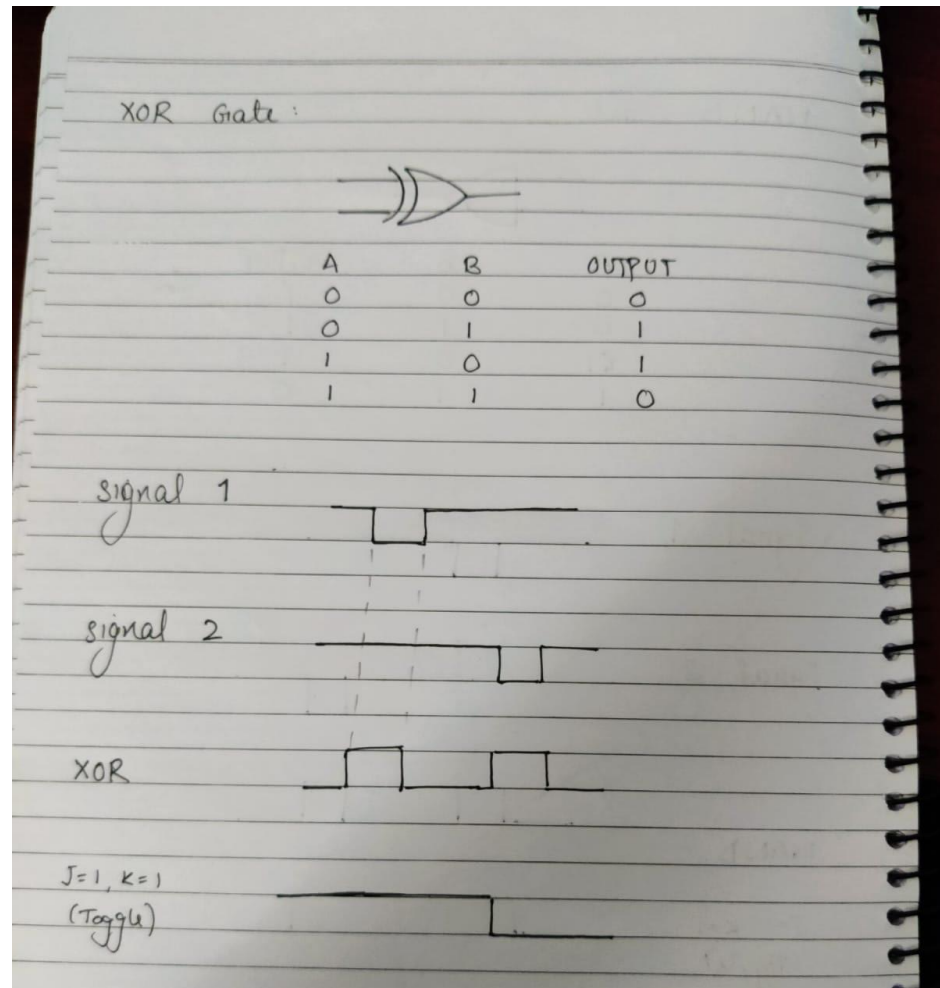 XOR Gate :
A B OUTPUT
0 0 0
0 1 1
1 0 1
1 1 0
signal 1
signal 2
XOR
J=1, K=1
(Toggle)